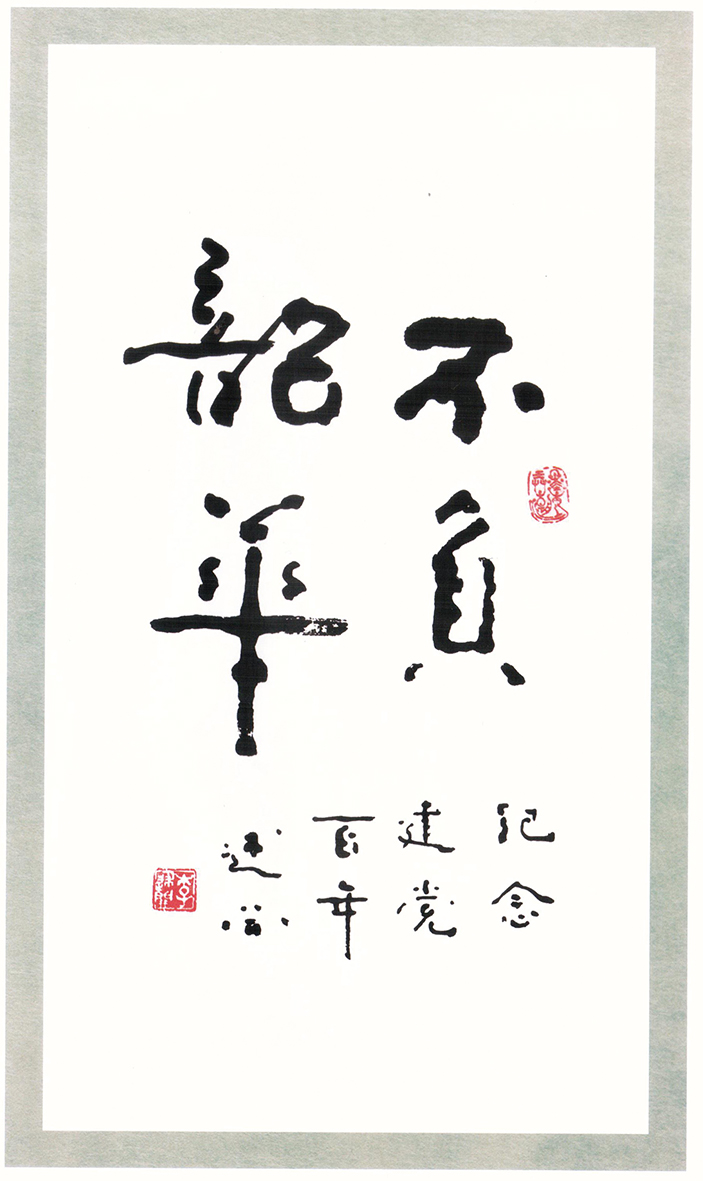 不负
韶华
纪念
建党
百年
述公